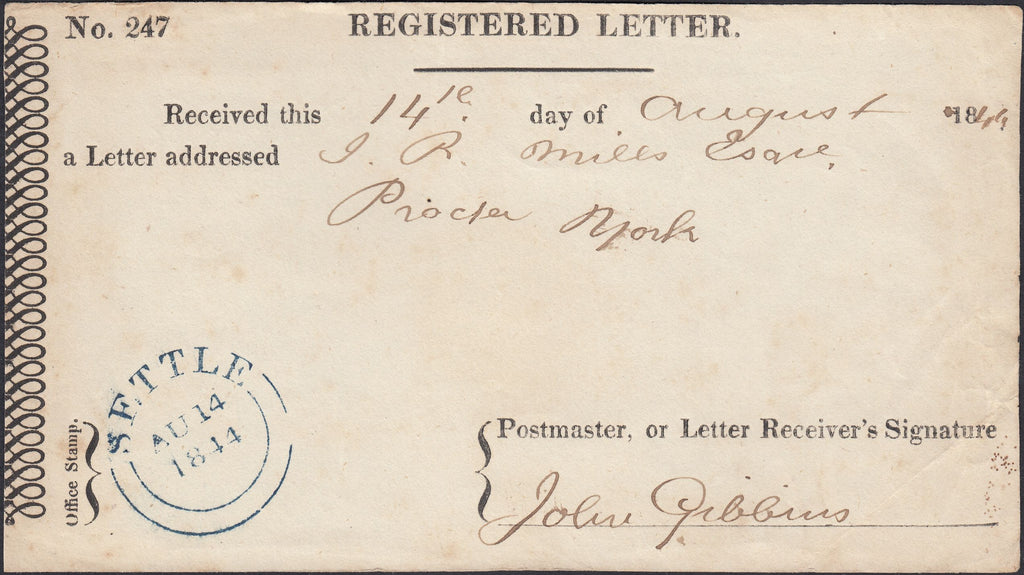 No. 247
REGISTERED LETTER.
Received this 14th. day of August 1844
a Letter addressed J. R. Mills Esqre,
Procter York
SETTLE
AU 14
1844
Office Stamp.
Postmaster, or Letter Receiver's Signature
John Gibbins